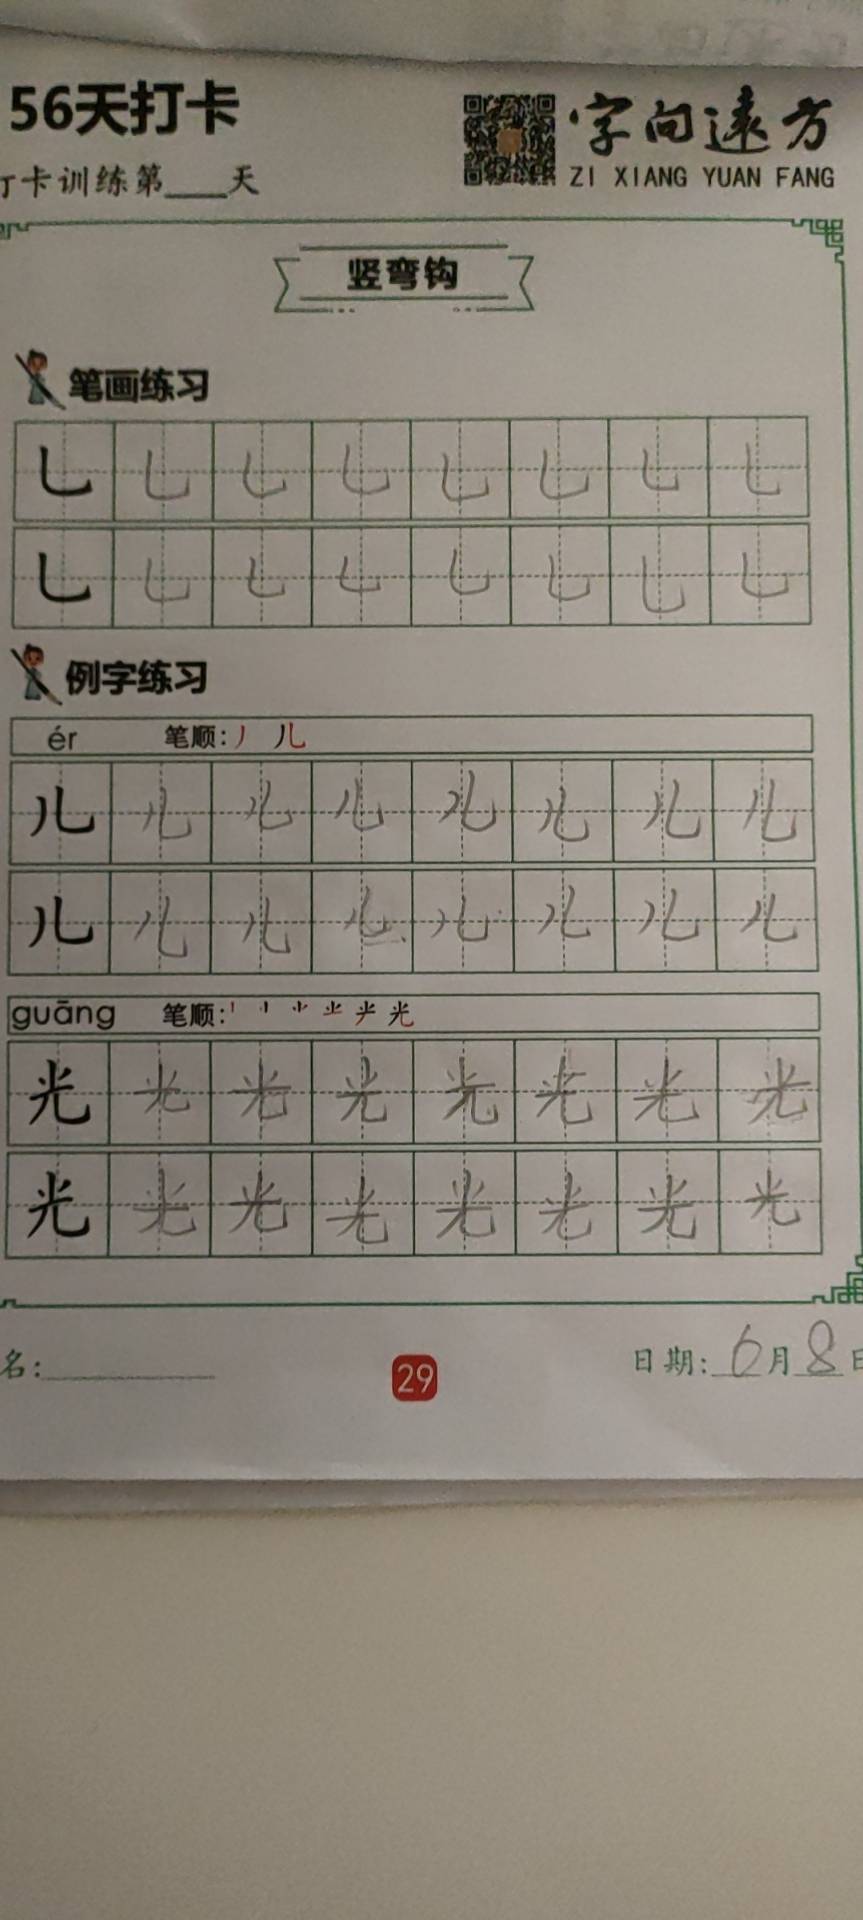 56天打卡
字向远方
打卡训练第____天
ZI XIANG YUAN FANG
竖弯钩
笔画练习
乚 乚 乚 乚 乚 乚 乚 乚
乚 乚 乚 乚 乚 乚 乚 乚
例字练习
ér 笔顺:丿 儿
儿 儿 儿 儿 儿 儿 儿 儿
儿 儿 儿 儿 儿 儿 儿 儿
guāng 笔顺:
光 光 光 光 光 光 光 光
光 光 光 光 光 光 光 光
名:
29
日期:6月8日